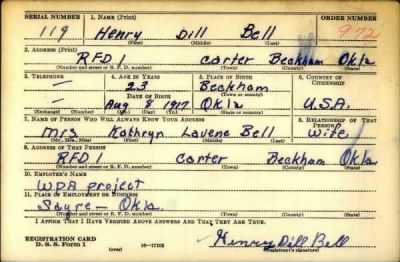 SERIAL NUMBER 1. NAME (Print) ORDER NUMBER
119 Henry Dill Bell 972
(First) (Middle) (Last)
2. ADDRESS (Print)
RFD 1 Carter Beckham Okla
(Number and street or R. F. D. number) (Town) (County) (State)
3. TELEPHONE 4. AGE IN YEARS 5. PLACE OF BIRTH 6. COUNTRY OF CITIZENSHIP
— 23 Beckham
DATE OF BIRTH (Town or county)
— Aug 8 1917 Okla U.S.A.
(Exchange) (Number) (Mo.) (Day) (Yr.) (State or country)
7. NAME OF PERSON WHO WILL ALWAYS KNOW YOUR ADDRESS 8. RELATIONSHIP OF THAT PERSON
Mrs Kathryn Lavene Bell Wife
(Mr., Mrs., Miss) (First) (Middle) (Last)
9. ADDRESS OF THAT PERSON
RFD 1 Carter Beckham Okla
(Number and street or R. F. D. number) (Town) (County) (State)
10. EMPLOYER'S NAME
WPA project
11. PLACE OF EMPLOYMENT OR BUSINESS
Sayre - Okla.
(Number and street or R. F. D. number) (Town) (County) (State)
I AFFIRM THAT I HAVE VERIFIED ABOVE ANSWERS AND THAT THEY ARE TRUE.
REGISTRATION CARD
D. S. S. Form 1 (over) 16—17105 Henry Dill Bell
(Registrant's signature)